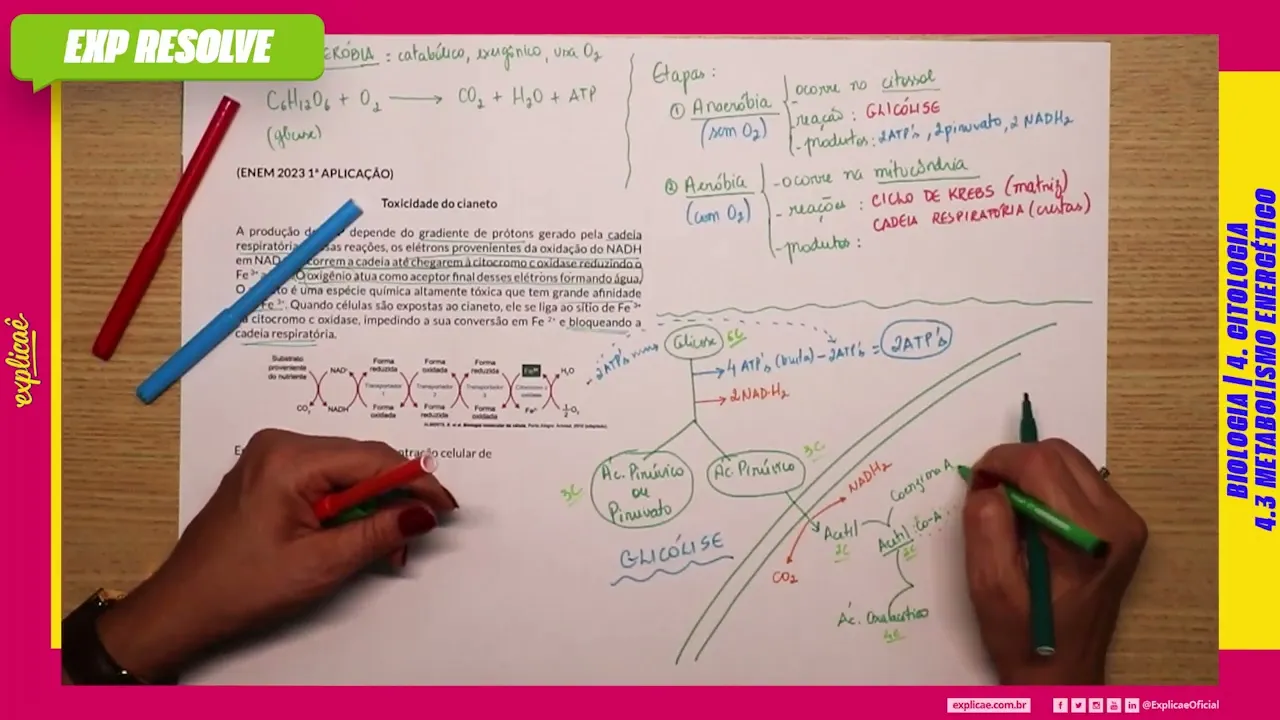 EXP RESOLVE
ERÓBIA : catabólico, exergônico, usa O₂
C₆H₁₂O₆ + O₂ → CO₂ + H₂O + ATP
(glicose)
(ENEM 2023 1ª APLICAÇÃO)
Toxicidade do cianeto
A produção de depende do gradiente de prótons gerado pela cadeia
respiratória. sas reações, os elétrons provenientes da oxidação do NADH
em NAD correm a cadeia até chegarem à citocromo c oxidase reduzindo o
Fe ³⁺ O oxigênio atua como aceptor final desses elétrons formando água.
O é uma espécie química altamente tóxica que tem grande afinidade
Fe ³⁺. Quando células são expostas ao cianeto, ele se liga ao sítio de Fe ³⁺
citocromo c oxidase, impedindo a sua conversão em Fe ²⁺ e bloqueando a
cadeia respiratória.
Substrato proveniente do nutriente
CO₂
NAD⁺
NADH
Forma reduzida
Transportador 1
Forma oxidada
Forma oxidada
Transportador 2
Forma reduzida
Forma reduzida
Transportador 3
Forma oxidada
Fe³⁺
Citocromo c oxidase
Fe²⁺
H₂O
½ O₂
ALBERTS, B. et al. Biologia molecular da célula. Porto Alegre: Artmed, 2010 (adaptado).
ntração celular de
Etapas :
① Anaeróbia
(sem O₂)
- ocorre no citossol
- reação : GLICÓLISE
- produtos : 2ATP's, 2 piruvato, 2 NADH₂
② Aeróbia
(com O₂)
- ocorre na mitocôndria
- reações : CICLO DE KREBS (matriz)
CADEIA RESPIRATÓRIA (cristas)
- produtos :
2ATP's
Glicose 6C
4 ATP's (bruto) - 2ATP's = 2ATP's
2NADH₂
3C
Ác. Pirúvico
ou
Piruvato
Ác. Pirúvico
3C
GLICÓLISE
NADH₂
CO₂
Acetil
2C
Coenzima A
Acetil Co-A
2C
Ác. Oxalacético
4C
explicaê
BIOLOGIA | 4. CITOLOGIA
4.3 METABOLISMO ENERGÉTICO
explicae.com.br
@ExplicaeOficial